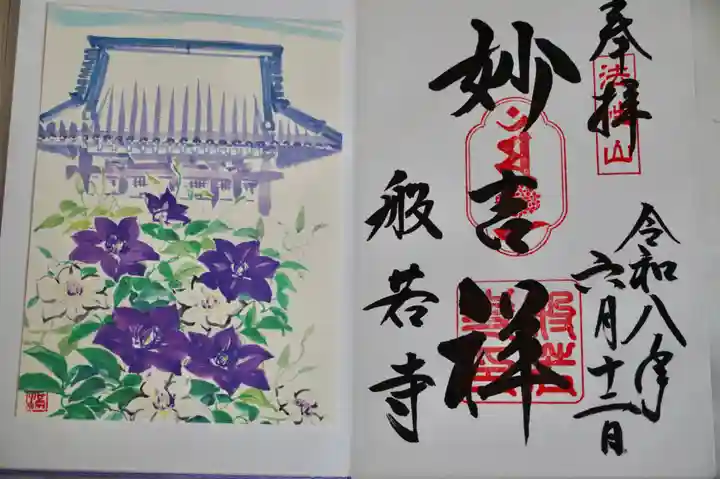 奉拝
法性山
令和八年
六月十二日
妙吉祥
般若寺